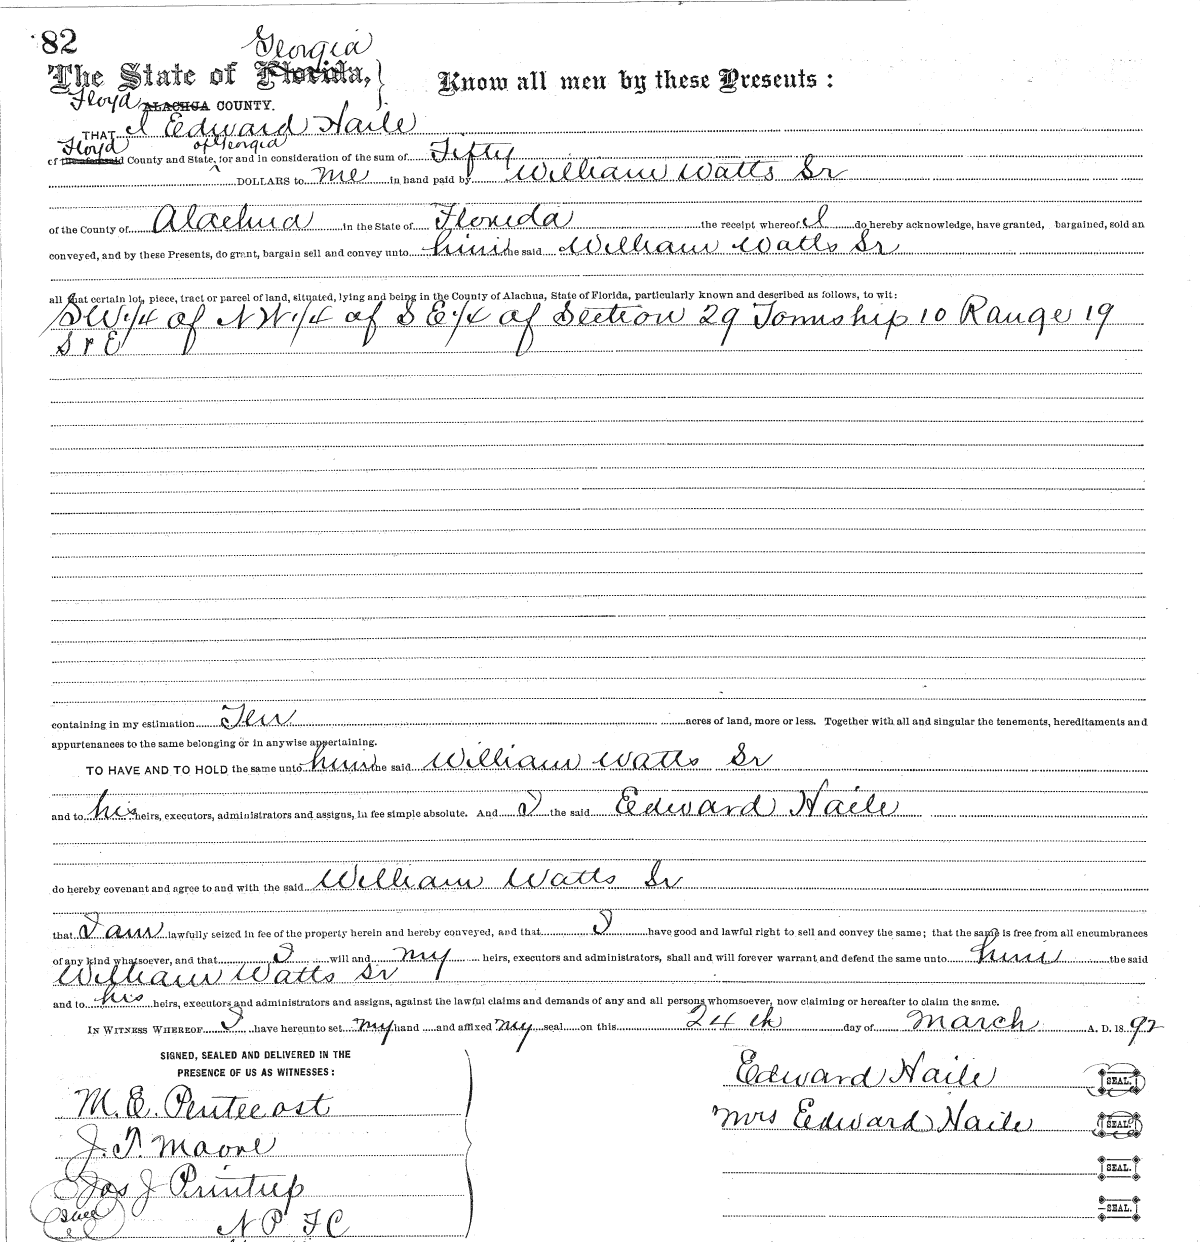 82
Georgia
The State of Florida, } Know all men by these Presents :
Floyd ALACHUA COUNTY.
THAT I Edward Haile
Floyd of Georgia
of the aforesaid County and State, for and in consideration of the sum of Fifty
DOLLARS to me in hand paid by William Watts Sr
of the County of Alachua in the State of Florida the receipt whereof I do hereby acknowledge, have granted, bargained, sold an
conveyed, and by these Presents, do grant, bargain sell and convey unto him the said William Watts Sr
all that certain lot, piece, tract or parcel of land, situated, lying and being in the County of Alachua, State of Florida, particularly known and described as follows, to wit:
SW 1/4 of NW 1/4 of SE 1/4 of Section 29 Township 10 Range 19
S & E
containing in my estimation Ten acres of land, more or less. Together with all and singular the tenements, hereditaments and
appurtenances to the same belonging or in anywise appertaining.
TO HAVE AND TO HOLD the same unto him the said William Watts Sr
and to his heirs, executors, administrators and assigns, in fee simple absolute. And I the said Edward Haile
do hereby covenant and agree to and with the said William Watts Sr
that I am lawfully seized in fee of the property herein and hereby conveyed, and that I have good and lawful right to sell and convey the same; that the same is free from all encumbrances
of any kind whatsoever, and that I will and my heirs, executors and administrators, shall and will forever warrant and defend the same unto him the said
William Watts Sr
and to his heirs, executors and administrators and assigns, against the lawful claims and demands of any and all persons whomsoever, now claiming or hereafter to claim the same.
IN WITNESS WHEREOF I have hereunto set my hand and affixed my seal on this 24th day of March A. D. 18 92
SIGNED, SEALED AND DELIVERED IN THE
PRESENCE OF US AS WITNESSES:
Edward Haile SEAL.
M. E. Pentecost
Mrs Edward Haile SEAL
J. T. Moore
SEAL.
Jas J Printup
Seal
SEAL.
N P F C